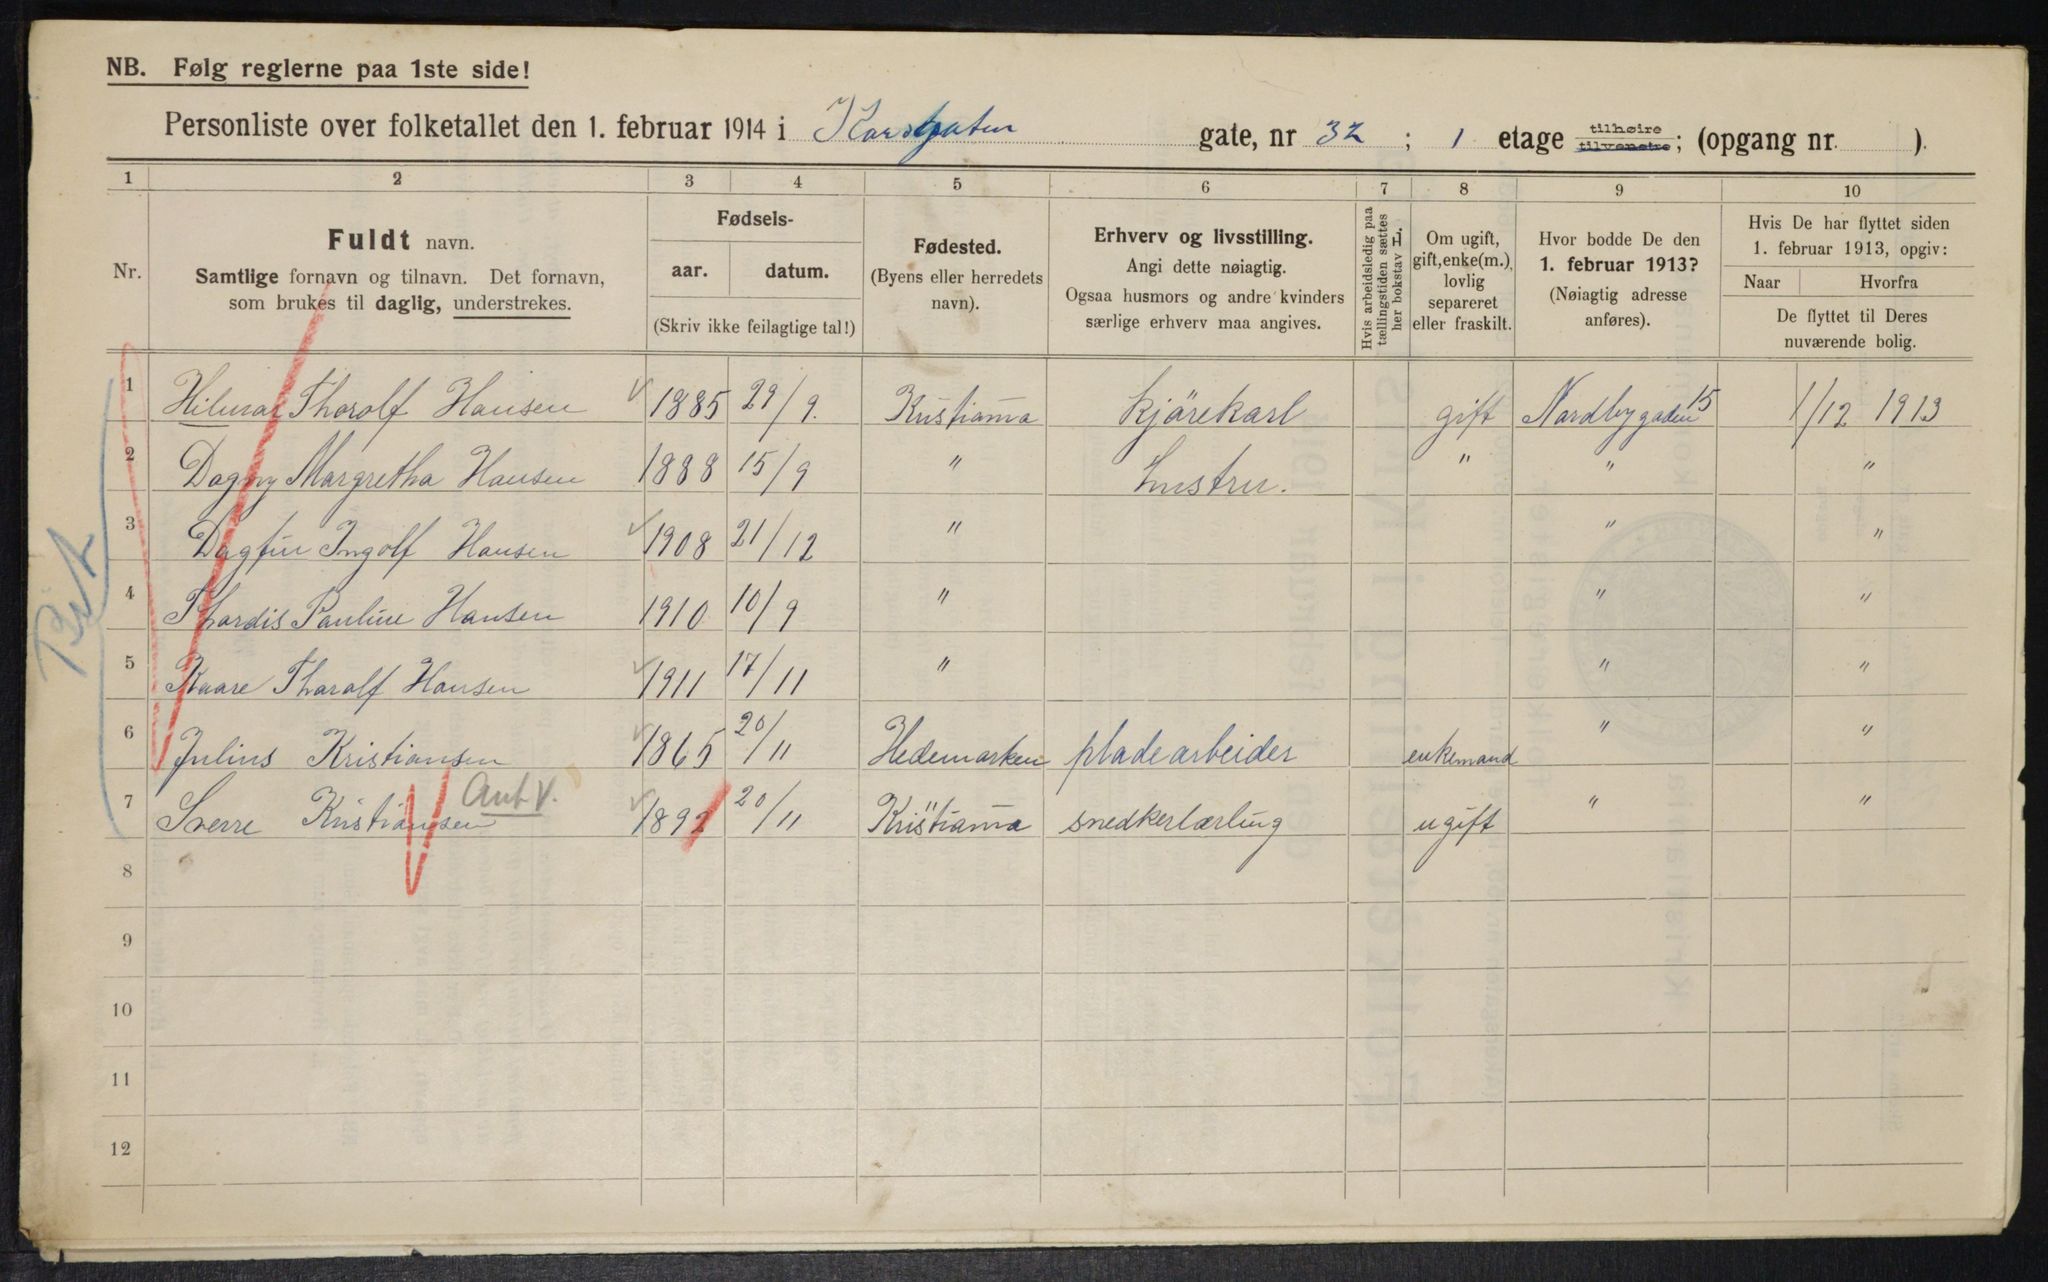 NB. Følg reglerne paa 1ste side!
Personliste over folketallet den 1. februar 1914 i Korsgaten gate, nr 32 ; 1 etage tilhøire tilvenstre; (opgang nr. ).
1 2 3 4 5 6 7 8 9 10
Nr.
Fuldt navn.
Samtlige fornavn og tilnavn. Det fornavn,
som brukes til daglig, understrekes.
Fødsels-
aar. datum.
(Skriv ikke feilagtige tal!)
Fødested.
(Byens eller herredets
navn).
Erhverv og livsstilling.
Angi dette nøiagtig.
Ogsaa husmors og andre kvinders
særlige erhverv maa angives.
Hvis arbeidsledig paa
tællingstiden sættes
her bokstav H.
Om ugift,
gift, enke(m.),
lovlig
separeret
eller fraskilt.
Hvor bodde De den
1. februar 1913?
(Nøiagtig adresse
anføres).
Hvis De har flyttet siden
1. februar 1913, opgiv:
Naar Hvorfra
De flyttet til Deres
nuværende bolig.
1 Hilmar Tharolf Hansen 1885 29/9. Kristiania Kjörekarl gift Nordbygaden 15 1/12 1913
2 Dagny Margretha Hansen 1888 15/9 " Hustru. " " "
3 Dagfin Ingolf Hansen 1908 21/12 " " "
4 Thordis Pauline Hansen 1910 10/9 " " "
5 Kaare Tharalf Hansen 1911 17/11 " " "
6 Julius Kristiansen 1865 20/11 Hedemarken pladearbeider enkemand " "
Ant. V.
7 Sverre Kristiansen 1892 20/11 Kristiania snedkerlærling ugift " "
8
9
10
11
12